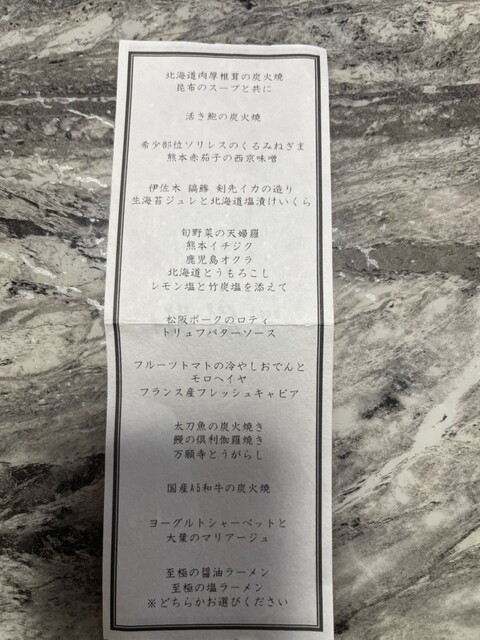 北海道肉厚椎茸の炭火焼
昆布のスープと共に
活き鮑の炭火焼
希少部位ソリレスのくるみねぎま
熊本赤茄子の西京味噌
伊佐木 縞鯵 剣先イカの造り
生海苔ジュレと北海道塩漬けいくら
旬野菜の天婦羅
熊本イチジク
鹿児島オクラ
北海道とうもろこし
レモン塩と竹炭塩を添えて
松阪ポークのロティ
トリュフバターソース
フルーツトマトの冷やしおでんと
モロヘイヤ
フランス産フレッシュキャビア
太刀魚の炭火焼き
鰻の倶利伽羅焼き
万願寺とうがらし
国産A5和牛の炭火焼
ヨーグルトシャーベットと
大葉のマリアージュ
至極の醤油ラーメン
至極の塩ラーメン
※どちらかお選びください